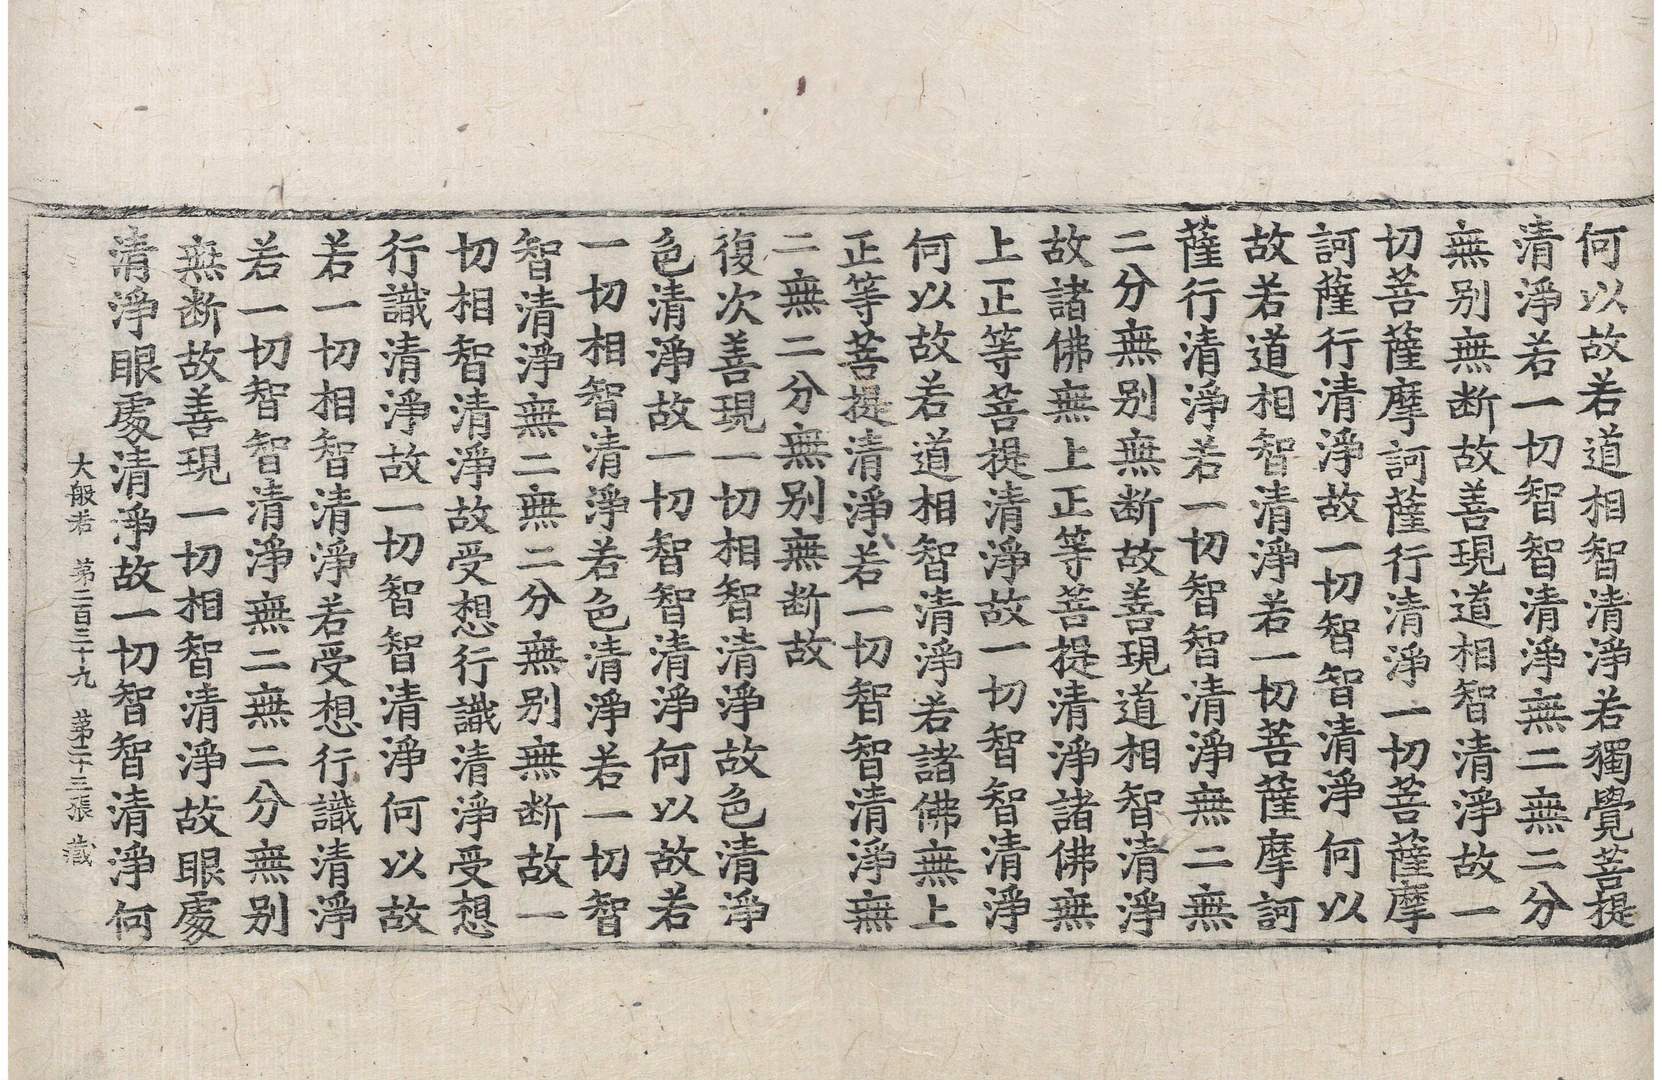 何以故若道相智清淨若獨覺菩提
清淨若一切智智清淨無二無二分
無别無断故善現道相智清淨故一
切菩薩摩訶薩行清淨一切菩薩摩
訶薩行清淨故一切智智清淨何以
故若道相智清淨若一切菩薩摩訶
薩行清淨若一切智智清淨無二無
二分無别無断故善現道相智清淨
故諸佛無上正等菩提清淨諸佛無
上正等菩提清淨故一切智智清淨
何以故若道相智清淨若諸佛無上
正等菩提清淨若一切智智清淨無
二無二分無别無断故
復次善現一切相智清淨故色清淨
色清淨故一切智智清淨何以故若
一切相智清淨若色清淨若一切智
智清淨無二無二分無别無断故一
切相智清淨故受想行識清淨受想
行識清淨故一切智智清淨何以故
若一切相智清淨若受想行識清淨
若一切智智清淨無二無二分無别
無断故善現一切相智清淨故眼處
清淨眼處清淨故一切智智清淨何
大般若 第二百三十九 第二十三張 藏